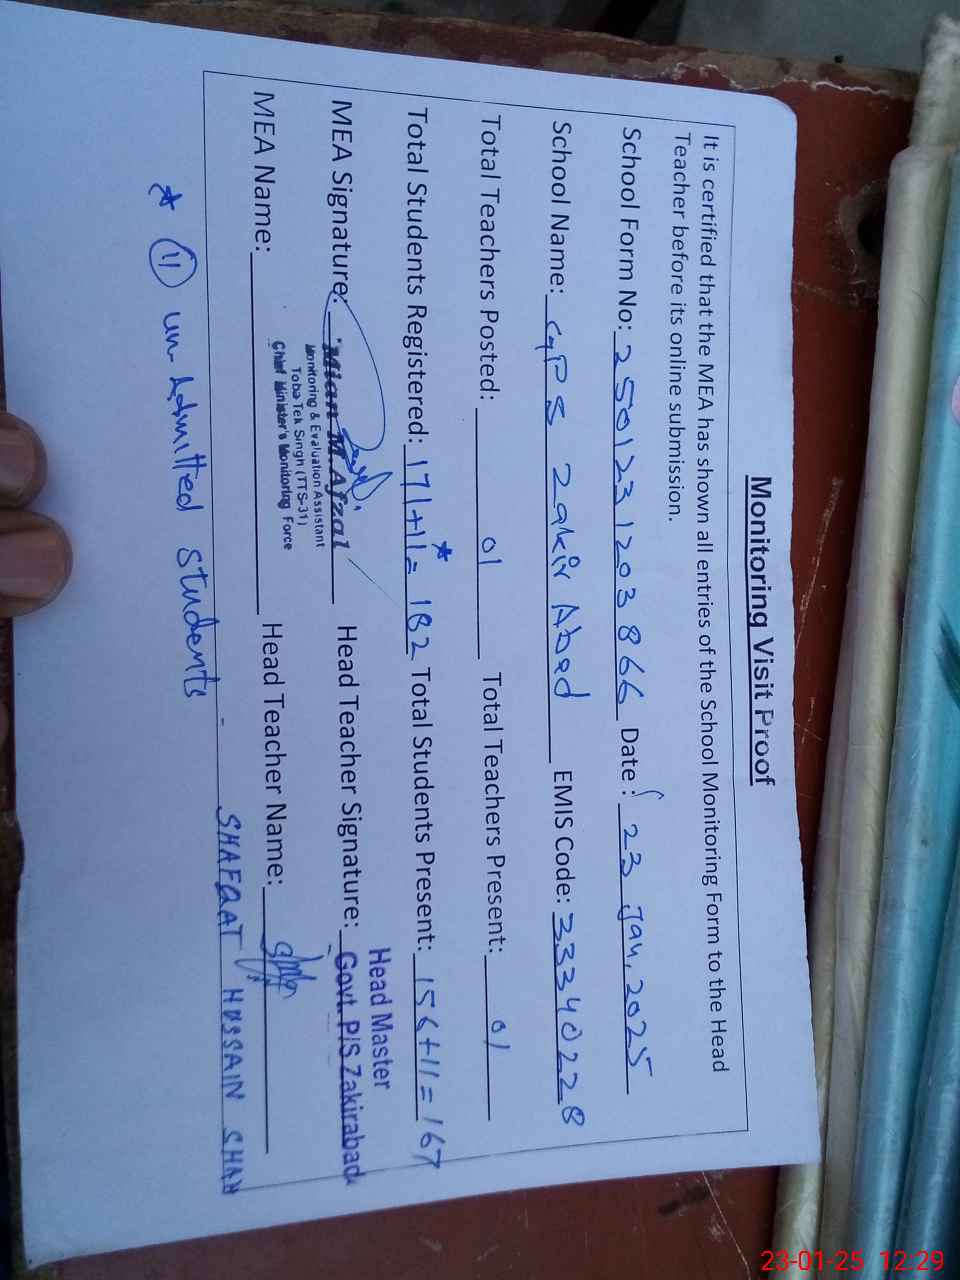 Monitoring Visit Proof
It is certified that the MEA has shown all entries of the School Monitoring Form to the Head
Teacher before its online submission.
School Form No: 250123 1203 866 Date: 23 Jan, 2025
School Name: GPS Zakir Abad EMIS Code: 33340228
Total Teachers Posted: 01 Total Teachers Present: 01
Total Students Registered: 171+11*= 182 Total Students Present: 156+11=167
MEA Signature: Mian M. Afzal Head Teacher Signature:
Monitoring & Evaluation Assistant
Toba Tek Singh (TTS-31)
Chief Minister's Monitoring Force
Head Master
Govt. P/S Zakirabad
MEA Name: Head Teacher Name:
SHAFQAT HUSSAIN SHAH
* 11 un-Admitted students
23-01-25 12:29